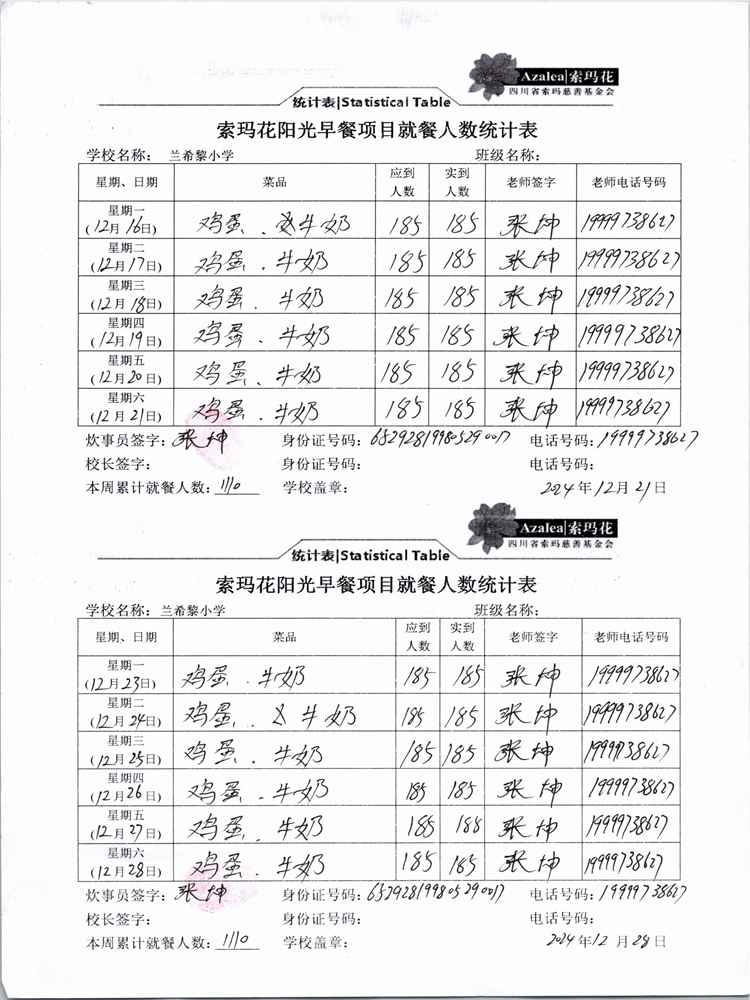 Azalea|索玛花
四川省索玛慈善基金会
统计表|Statistical Table
索玛花阳光早餐项目就餐人数统计表
学校名称： 兰希黎小学 班级名称：
星期、日期 菜品 应到人数 实到人数 老师签字 老师电话号码
星期一 (12月16日) 鸡蛋、牛奶 185 185 张坤 19999738627
星期二 (12月17日) 鸡蛋、牛奶 185 185 张坤 19999738627
星期三 (12月18日) 鸡蛋、牛奶 185 185 张坤 19999738627
星期四 (12月19日) 鸡蛋、牛奶 185 185 张坤 19999738627
星期五 (12月20日) 鸡蛋、牛奶 185 185 张坤 19999738627
星期六 (12月21日) 鸡蛋、牛奶 185 185 张坤 19999738627
炊事员签字：张坤 身份证号码：652928199805290017 电话号码：19999738627
校长签字： 身份证号码： 电话号码：
本周累计就餐人数：1110 学校盖章： 2024年12月21日
Azalea|索玛花
四川省索玛慈善基金会
统计表|Statistical Table
索玛花阳光早餐项目就餐人数统计表
学校名称：兰希黎小学 班级名称：
星期、日期 菜品 应到人数 实到人数 老师签字 老师电话号码
星期一 (12月23日) 鸡蛋、牛奶 185 185 张坤 19999738627
星期二 (12月24日) 鸡蛋、牛奶 185 185 张坤 19999738627
星期三 (12月25日) 鸡蛋、牛奶 185 185 张坤 19999738627
星期四 (12月26日) 鸡蛋、牛奶 185 185 张坤 19999738627
星期五 (12月27日) 鸡蛋、牛奶 185 188 张坤 19999738627
星期六 (12月28日) 鸡蛋、牛奶 185 185 张坤 19999738627
炊事员签字：张坤 身份证号码：652928199805290017 电话号码：19999738627
校长签字： 身份证号码： 电话号码：
本周累计就餐人数：1110 学校盖章： 2024年12月28日